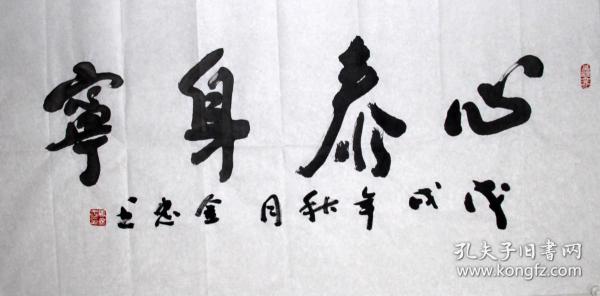 心泰身寧
戊戌年秋月金忠玉
孔夫子旧书网
www.kongfz.com